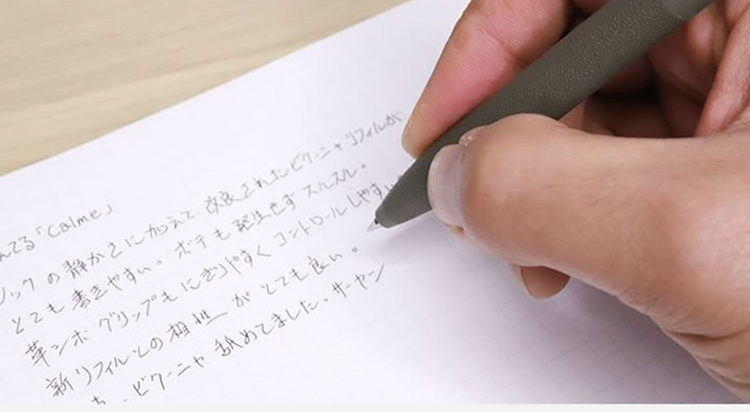 んてる「Calme」
ノックの静かさに加えて、改良されたビクーニャリフィルが
とても書きやすい。ボテも発生せずスルスル。
革シボグリップもにぎりやすくコントロールしやすい
新リフィルとの相性がとても良い。
ち、ビクーニャ舐めてました。サーセン